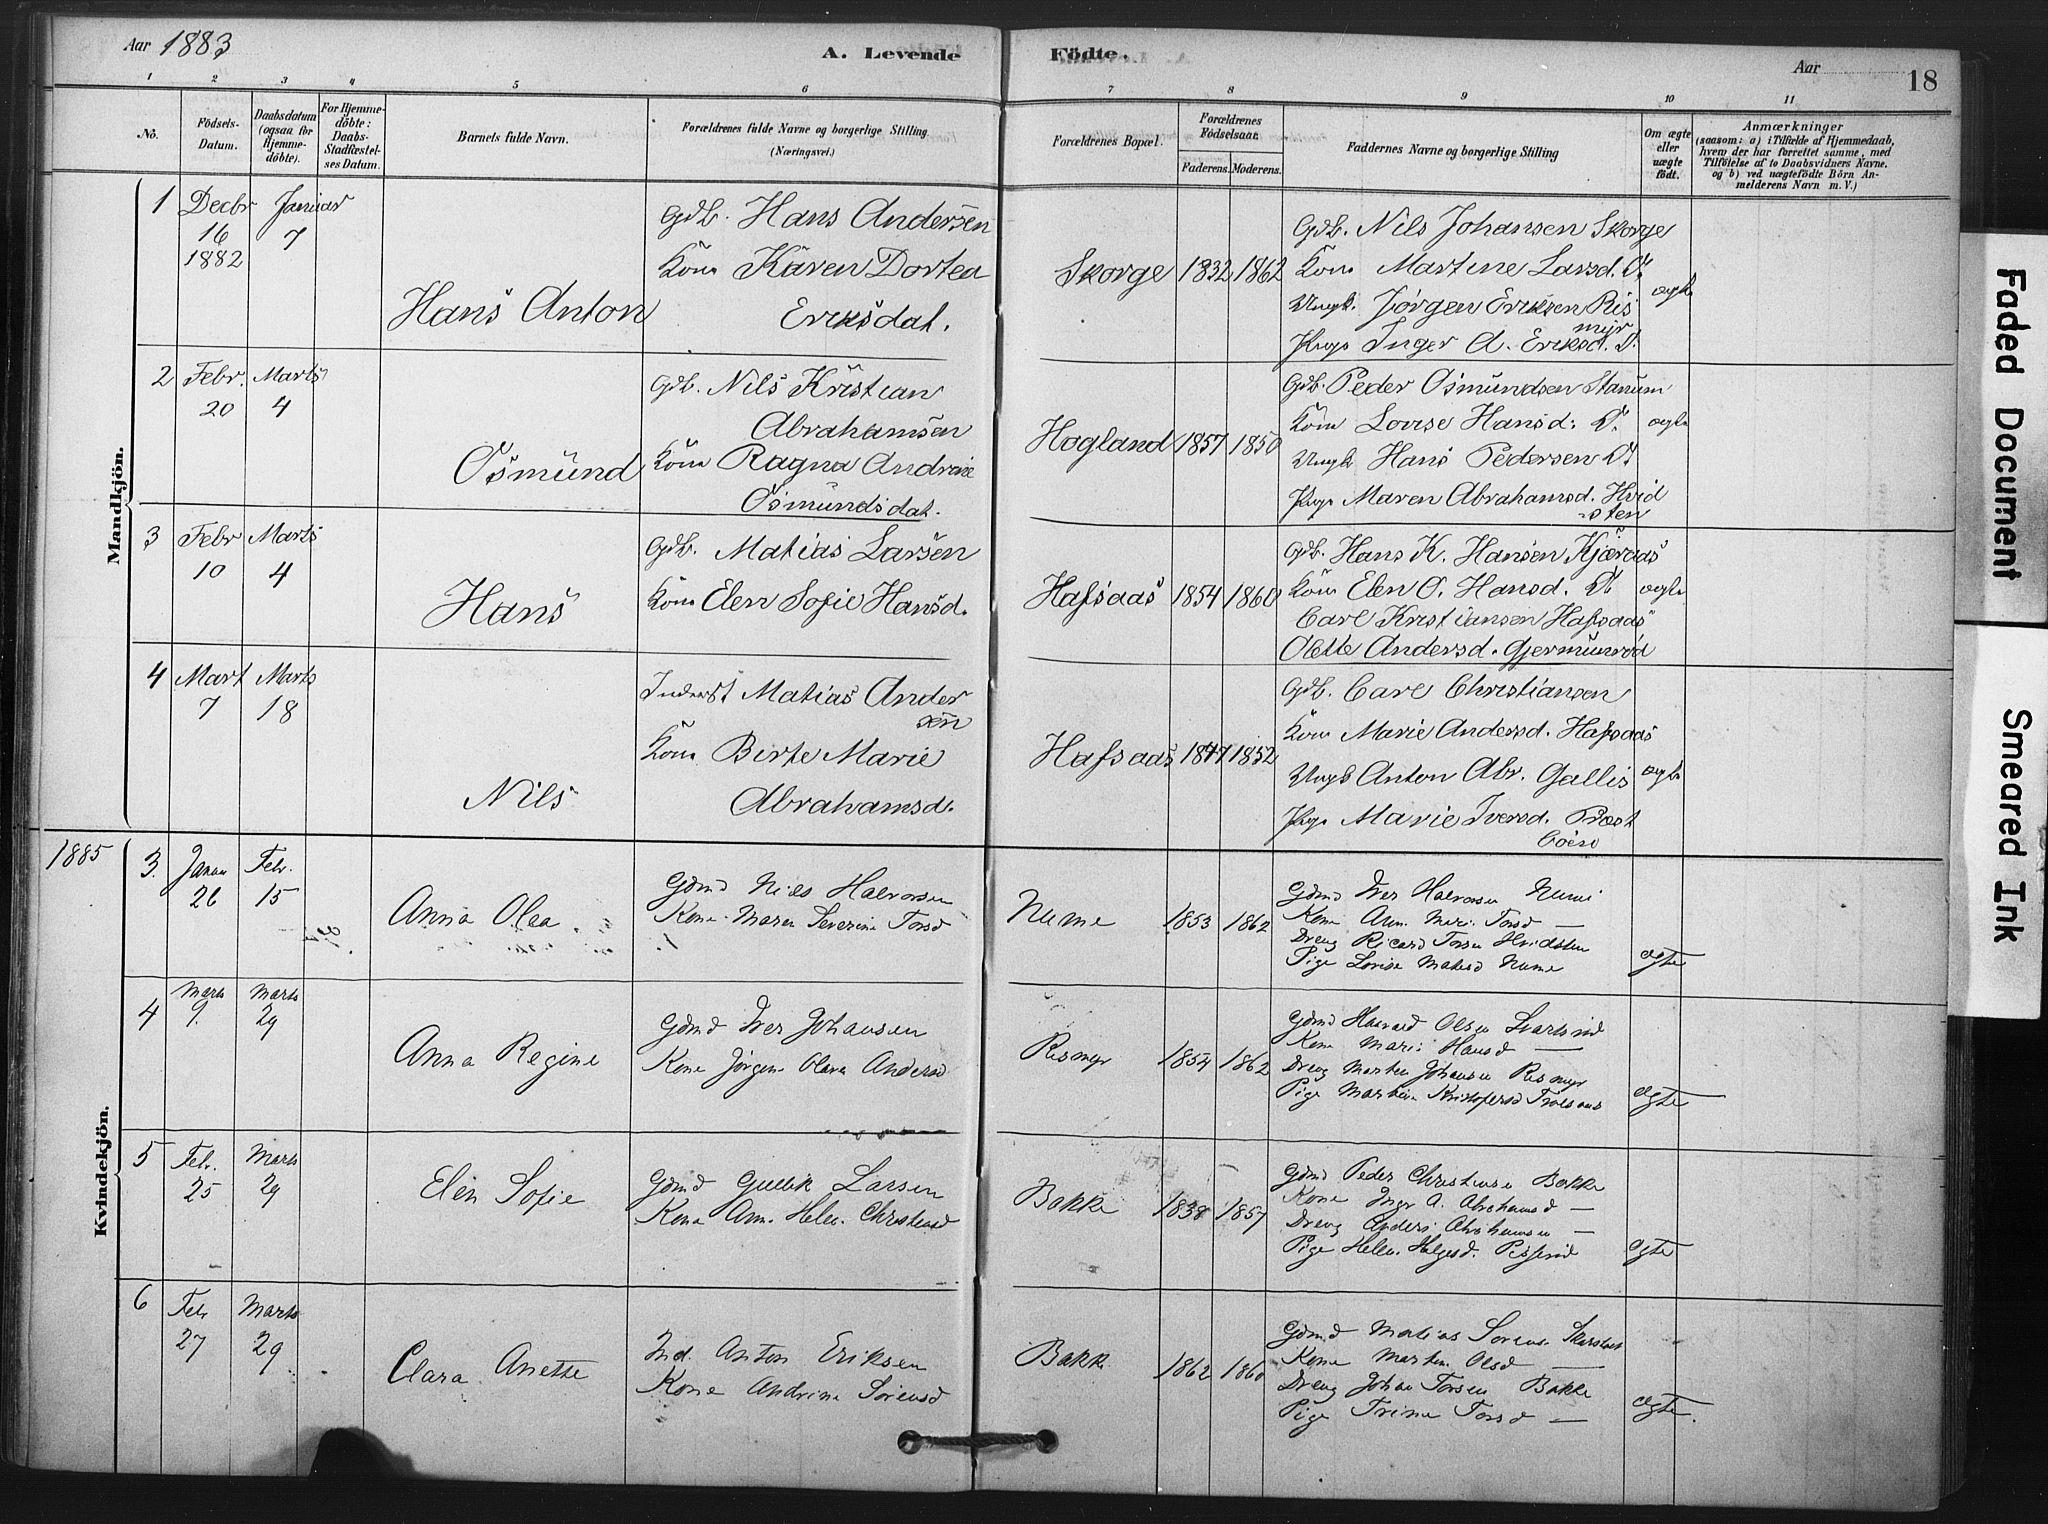 Aar 1883
A. Levende Födte.
Aar
18
1 2 3 4 5 6 7 8 9 10 11
No.
Födsels-Datum.
Daabsdatum (ogsaa for Hjemme-döbte).
For Hjemme-döbte: Daabs-Stadfæstel-ses Datum.
Barnets fulde Navn.
Forældrenes fulde Navne og borgerlige Stilling
(Næringsvei.)
Forældrenes Bopæl.
Forældrenes Födselsaar.
Faderens. Moderens.
Faddernes Navne og borgerlige Stilling
Om ægte eller uægte födt.
Anmærkninger
(saasom: a) i Tilfælde af Hjemmedaab,
hvem der har forrettet samme, med
Tilföielse af to Daabsvidners Navne.
og b) ved uægtefödte Börn An-
melderens Navn m. V.)
Mandkjön.
1 Decbr 16 1882
Januar 7
Hans Anton
Gdb. Hans Andersen
Kone Karen Dortea
Eriksdat.
Skorge 1832 1862
Gdb. Nils Johansen Skorge
Kone Martine Larsd. Do
Ungk. Jörgen Eriksen Ris
myr
Pige Inger A. Eriksd. D.
ægte
2 Febr. 20
Marts 4
Osmund
Gdb. Nils Kristian
Abrahamsen
Kone Ragna Andrine
Osmundsdat.
Hogland 1857 1850
Gdb. Peder Osmundsen Stanum
Kone Lovise Hansd. D.
Ungk Hans Pedersen Do
Pige Maren Abrahamsd. Hvid
sten
ægte
3 Febr 10
Marts 4
Hans
Gdb. Matias Larsen
Kone Elen Sofie Hansd.
Hafsaas 1854 1860
Gdb. Hans K. Hansen Kjæraas
Kone Elen O. Hansd. Do
Carl Kristiansen Hafsaas
Olette Andersd. Gjermundröd
ægte
4 Mart 7
Marts 18
Nils
Inderst Matias Ander
sen
Kone Birte Marie
Abrahamsd.
Hafsaas 1847 1852
Gdb. Carl Christiansen
Kone Marie Andersd. Hafsaas
Ungk Anton Abr. Gallis
Pige Marie Iversd. Præst
ægte
1885
Kvindekjön.
3. Januar 26
Febr. 15
Anna Olea
Gdmd Niels Halvorsen
Kone Maren Severine Torsd
Nume 1853 1862
Gdmd Iver Halvorsen Nume
Kone Ann Mari Torsd —
Dreng Ricard Torsen Hvidsten
Pige Lovise Matisd Nume
ægte
4 Marts 9.
Marts 29
Anna Regine
Gdmd Iver Johansen
Kone Jörgine Olava Andersd
Rismyr 1854 1862
Gdmd Haavald Olsen
Kone Mari Hansd —
Dreng Martin Johansen Rismyr
Pige Martine Kristofersd Trolsaas
ægte
5 Febr. 25
Marts 29
Elen Sofie
Gdmd Gullik Larsen
Kone Ann Helen Christensd
Bakke 1838 1857
Gdmd Peder Christensen Bakke
Kone Inger A. Abrahamsd —
Dreng Anders Abrahamsen —
Pige Helene Helgesd.
ægte
6 Febr 27
Marts 29
Clara Anette
Ind. Anton Eriksen
Kone Andrine Sörensd
Bakke 1862 1860
Gdmd Matias Sörensen
Kone Martine Olsd —
Dreng Johan Torsen Bakke
Pige Trine Torsd —
ægte.
Faded Document
Smeared Ink